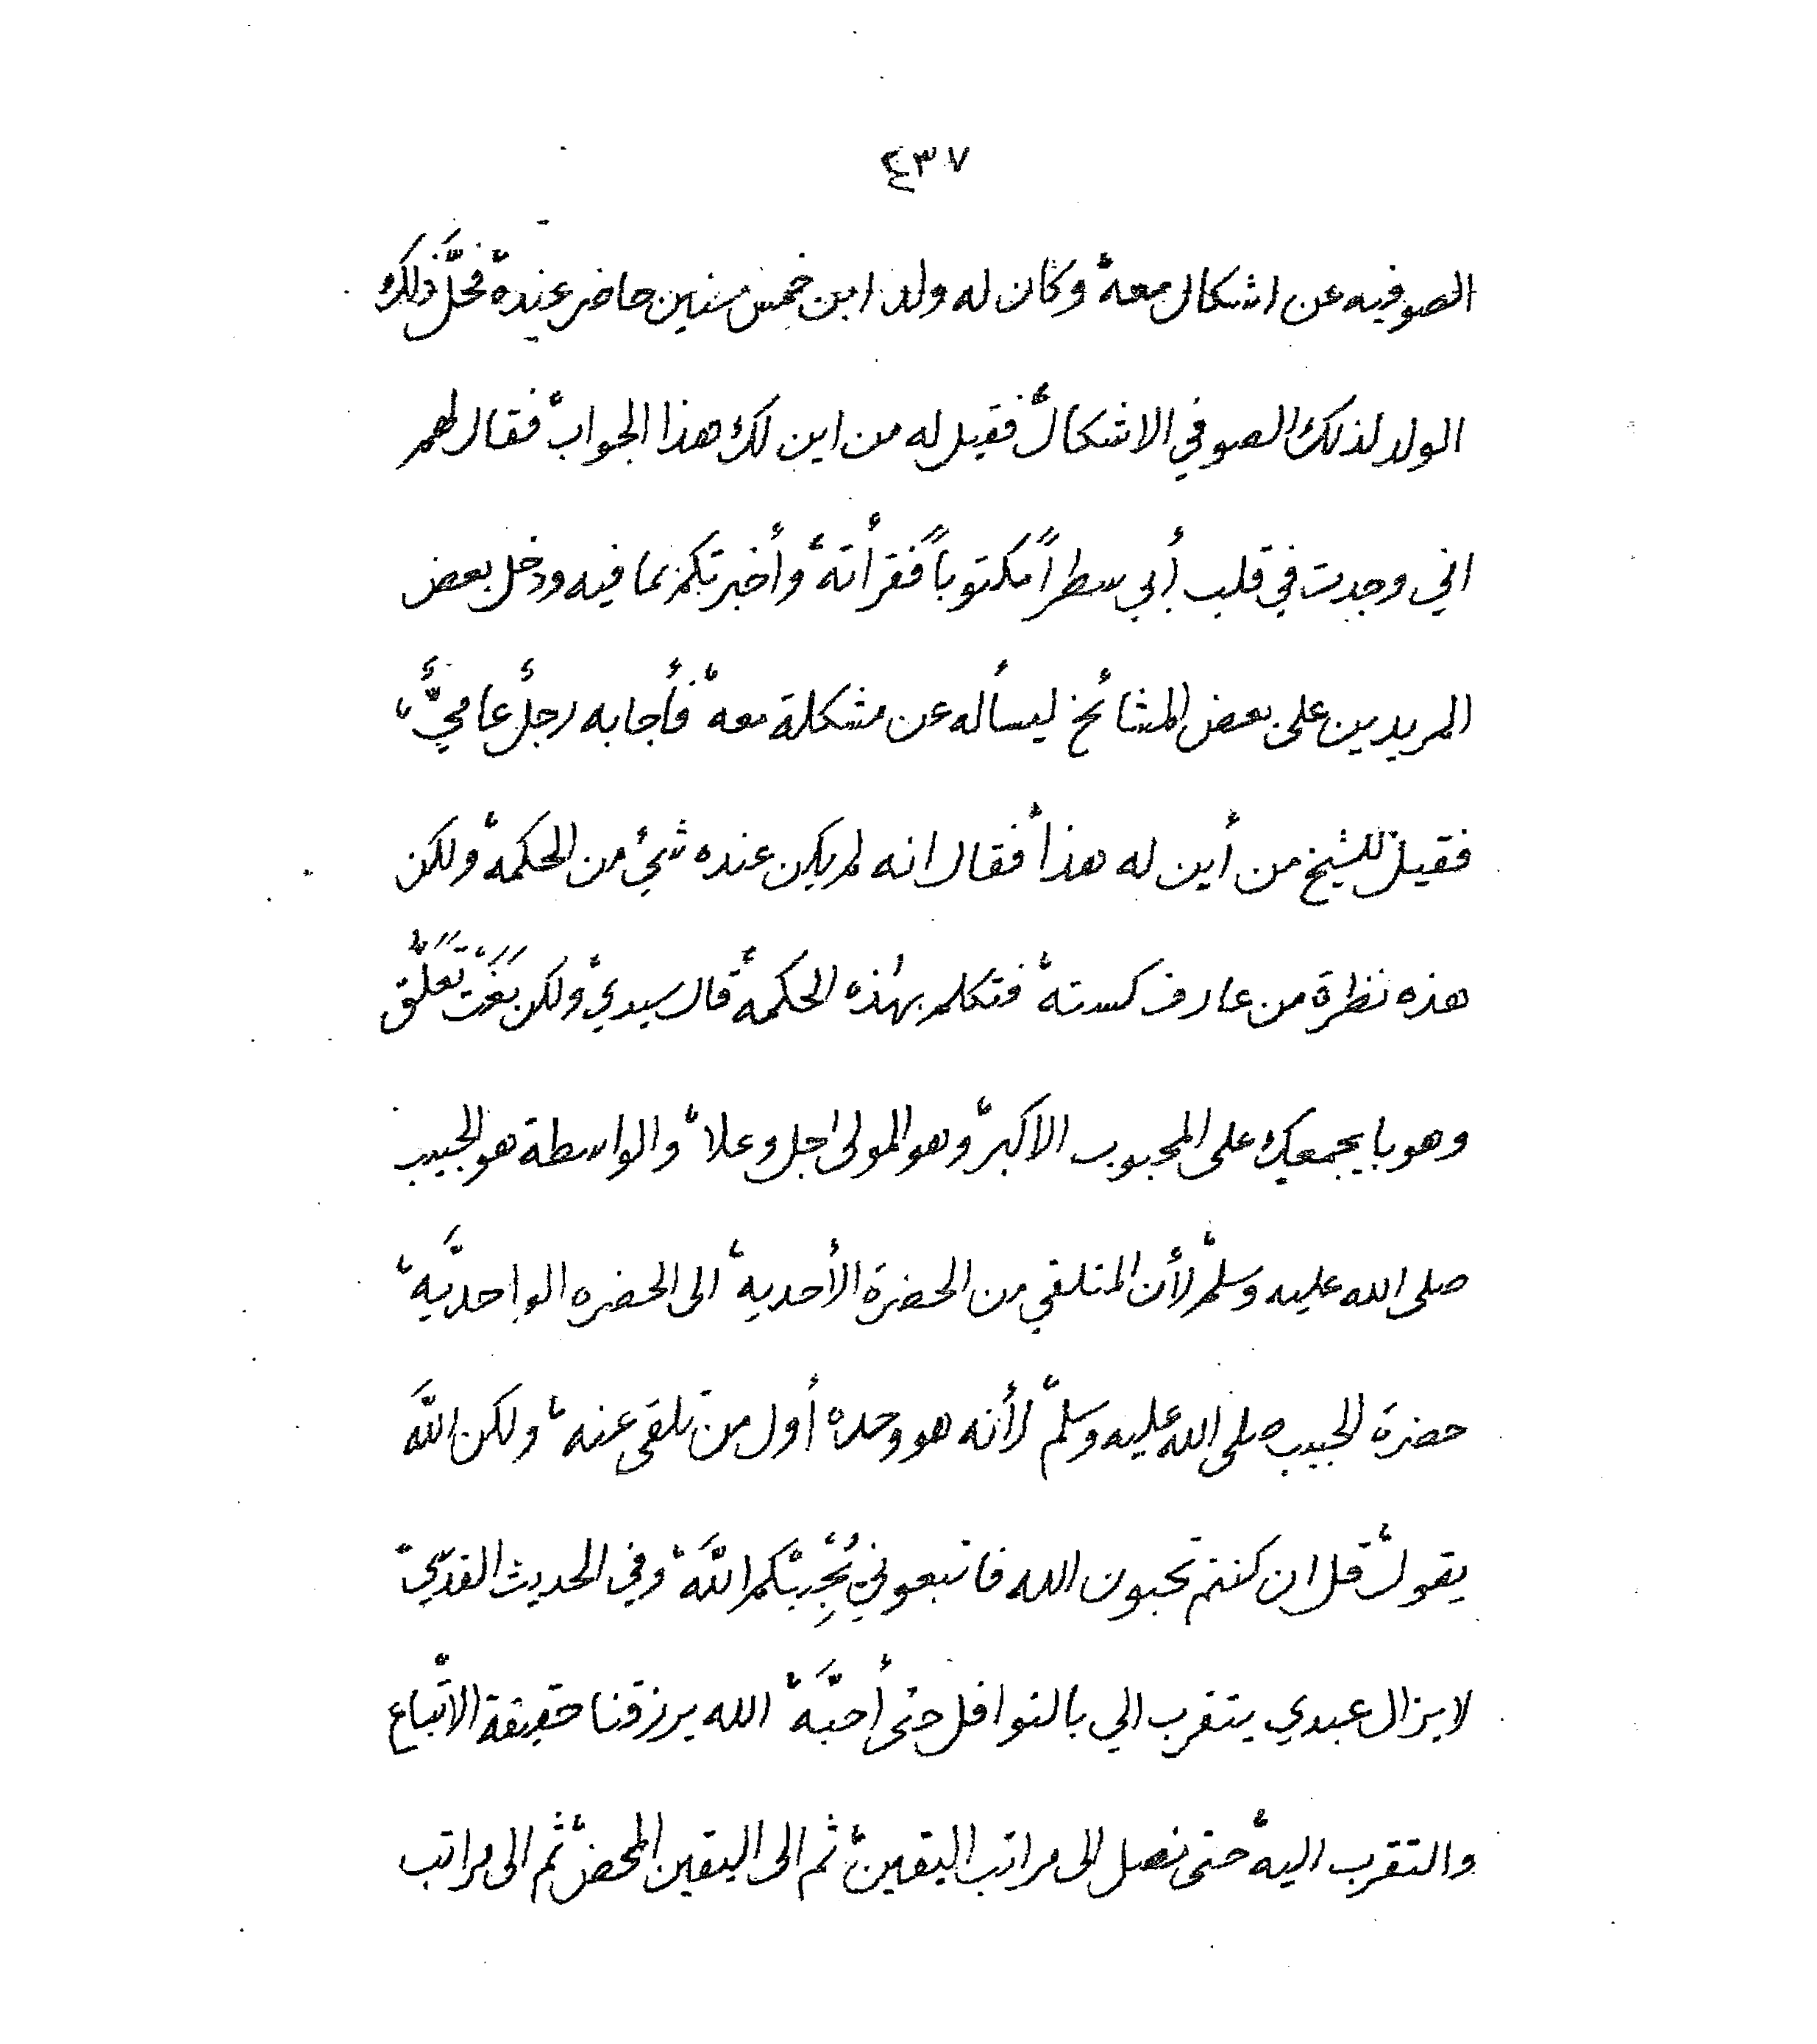 ٤٣٧
الصوفيه عن اشكال معه، وكان له ولد ابن خمس سنين حاضر عنده، فحلَّ ذلك
الولد لذلك الصوفي الاشكال، فقيل له من اين لك هذا الجواب، فقال لهم
اني وجدت في قلب أبي سطراً مكتوباً فقرأته، وأخبرتكم بما فيه ودخل بعض
المريدين على بعض المشائخ ليسأله عن مشكلة معه، فأجابه رجلٌ عاميٌّ،
فقيل للشيخ من أين له هذا، فقال انه لم يكن عنده شيٌ من الحكمه، ولكن
هذه نظرة من عارف كسته، فتكلم بهذه الحكمه، قال سيدي، ولكن بَغَيْت تَعَلُّق
وهو با يجمعك على المحبوب الاكبر، وهو المولى جل وعلا، والواسطة هو الحبيب
صلى الله عليه وسلم، لأن المتلقي من الحضرة الأحديه، الى الحضره الواحديَّه،
حضرة الحبيب صلى الله عليه وسلم، لأنه هو وحده أول من تلقى عنه، ولكن اللَّه
يقول، قل ان كنتم تحبون الله فاتبعوني يُحْبِبْكم اللَّه، وفي الحديث القدسي،
لا يزال عبدي يتقرب الي بالنوافل حتى أحبَّه، الله يرزقنا حقيقة الاتّباع
والتقرب اليه، حتى نصل الى مراتب اليقين، ثم الى اليقين المحض، ثم الى مراتب